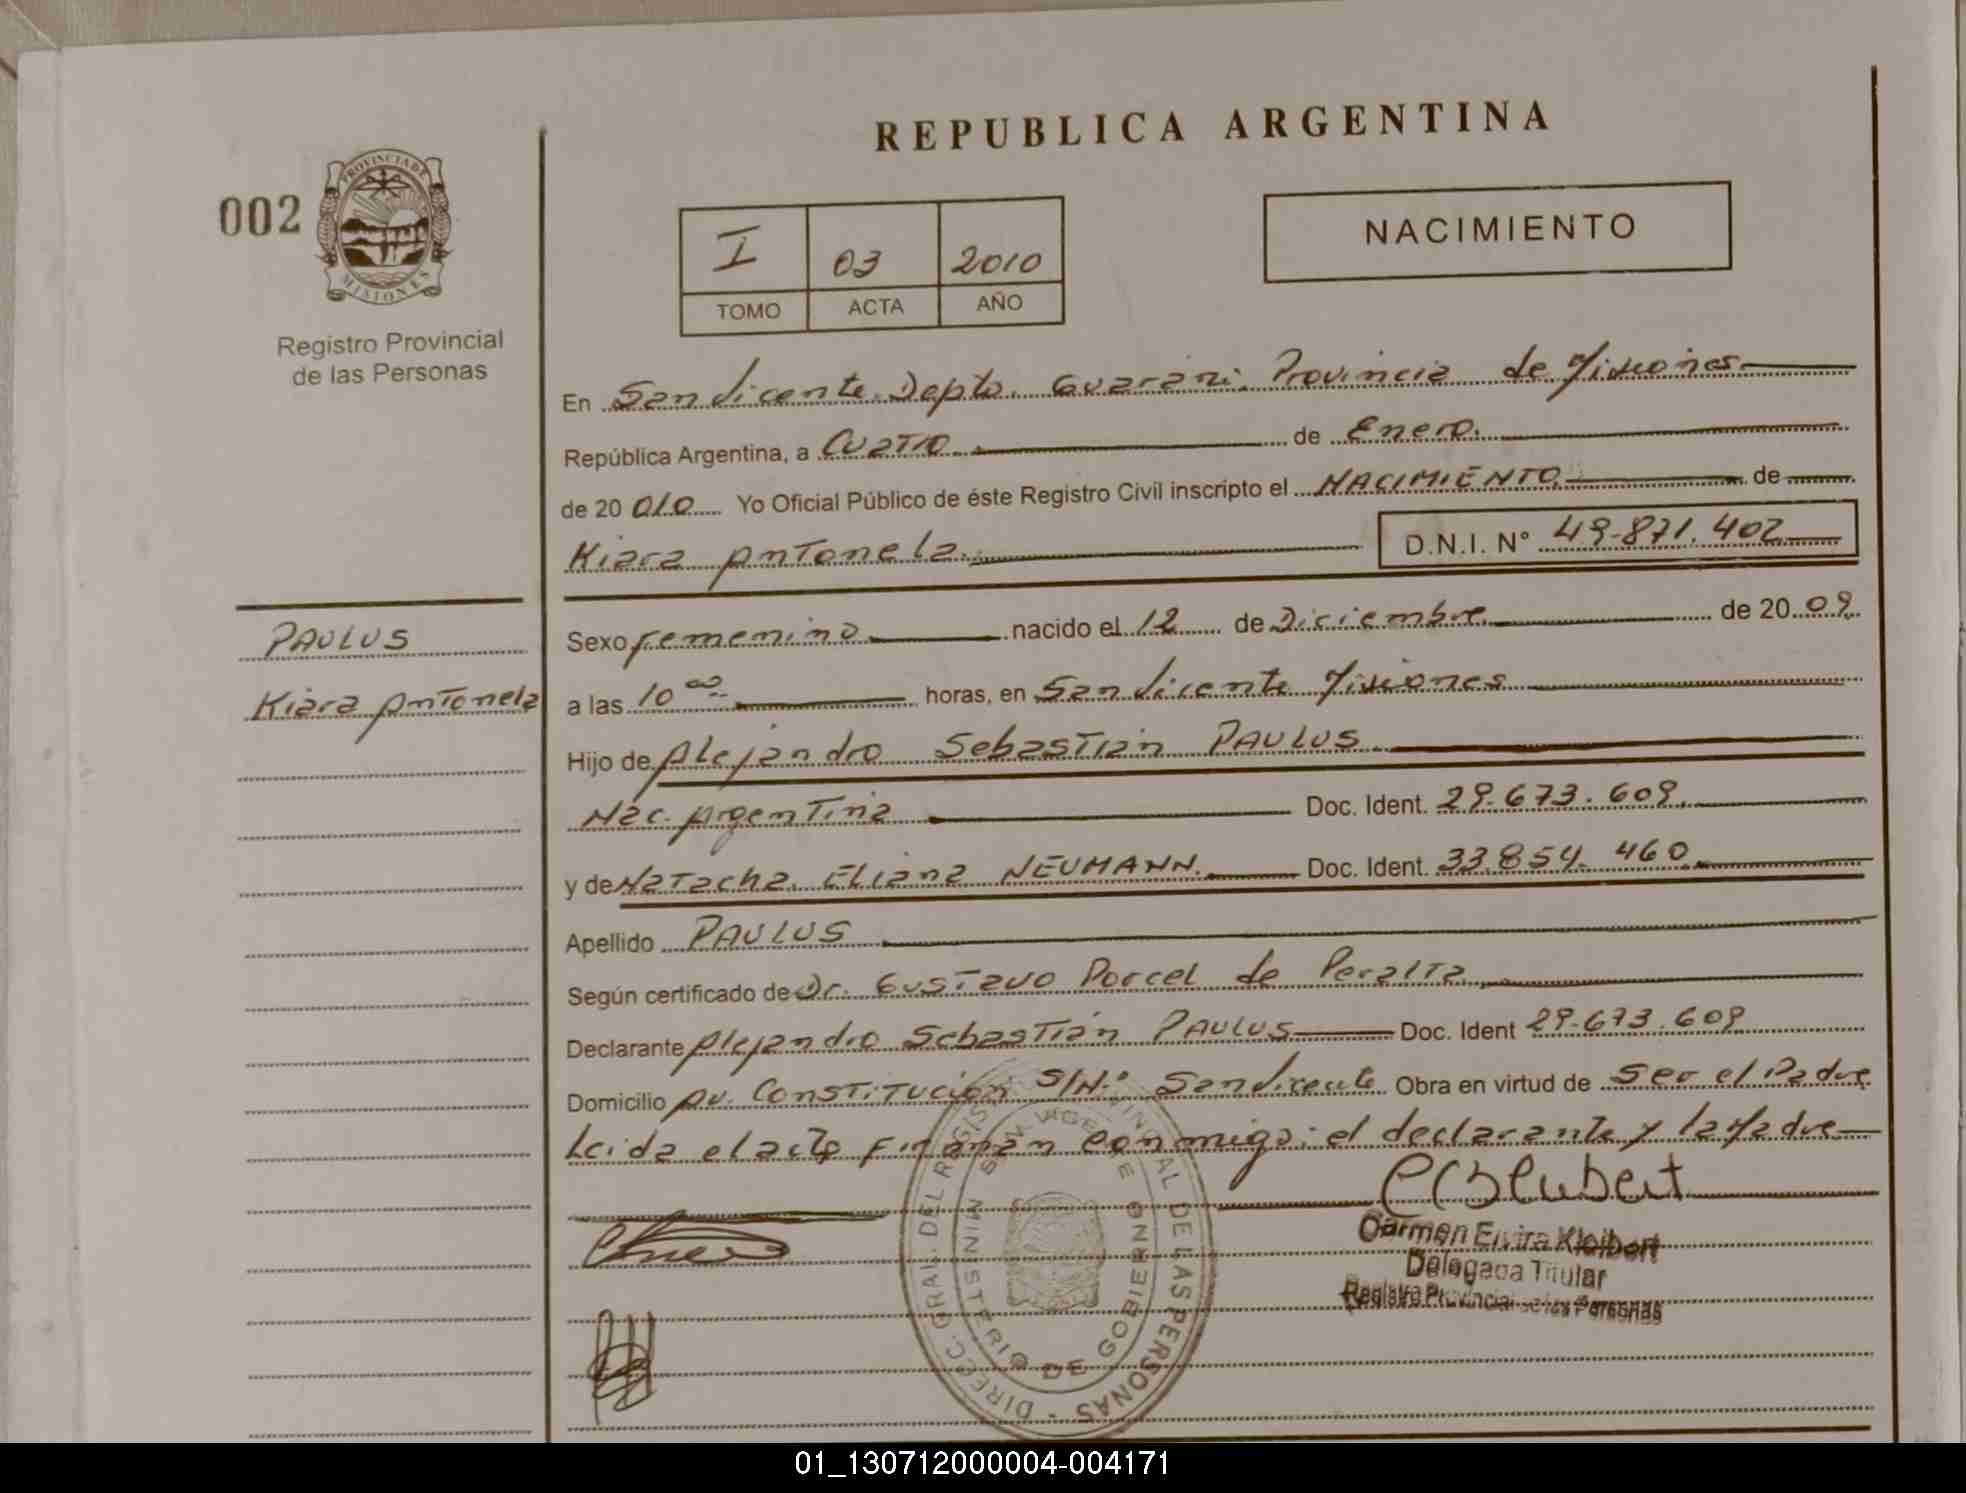 REPUBLICA ARGENTINA
002
PROVINCIA DE
MISIONES
Registro Provincial
de las Personas
I 03 2010
TOMO ACTA AÑO
NACIMIENTO
En San Vicente. Depto. Guarani. Provincia de Misiones
República Argentina, a Cuatro. de Enero.
de 20 010 Yo Oficial Público de éste Registro Civil inscripto el NACIMIENTO. de
Kiara Antonela. D.N.I. N° 49.871.402
PAULUS
Kiara Antonela
Sexo femenino nacido el 12 de Diciembre de 20 09.
a las 10 00 horas, en San Vicente Misiones
Hijo de Alejandro Sebastián PAULUS
Nac. Argentina Doc. Ident. 29.673.609.
y de Natacha Eliana NEUMANN. Doc. Ident. 33.854.460
Apellido PAULUS
Según certificado de Dr. Gustavo Porcel de Peralta
Declarante Alejandro Sebastián PAULUS Doc. Ident 29.673.609
Domicilio Av. Constitución S/N.° San Vicente Obra en virtud de Ser el Padre
Leida el acta firman conmigo: el declarante y la Madre
Carmen Elvira Kleibert
Delegada Titular
Registro Provincial de las Personas
DIREC. GRAL. DEL REGISTRO PROVINCIAL DE LAS PERSONAS
MINISTERIO DE GOBIERNO
01_130712000004-004171